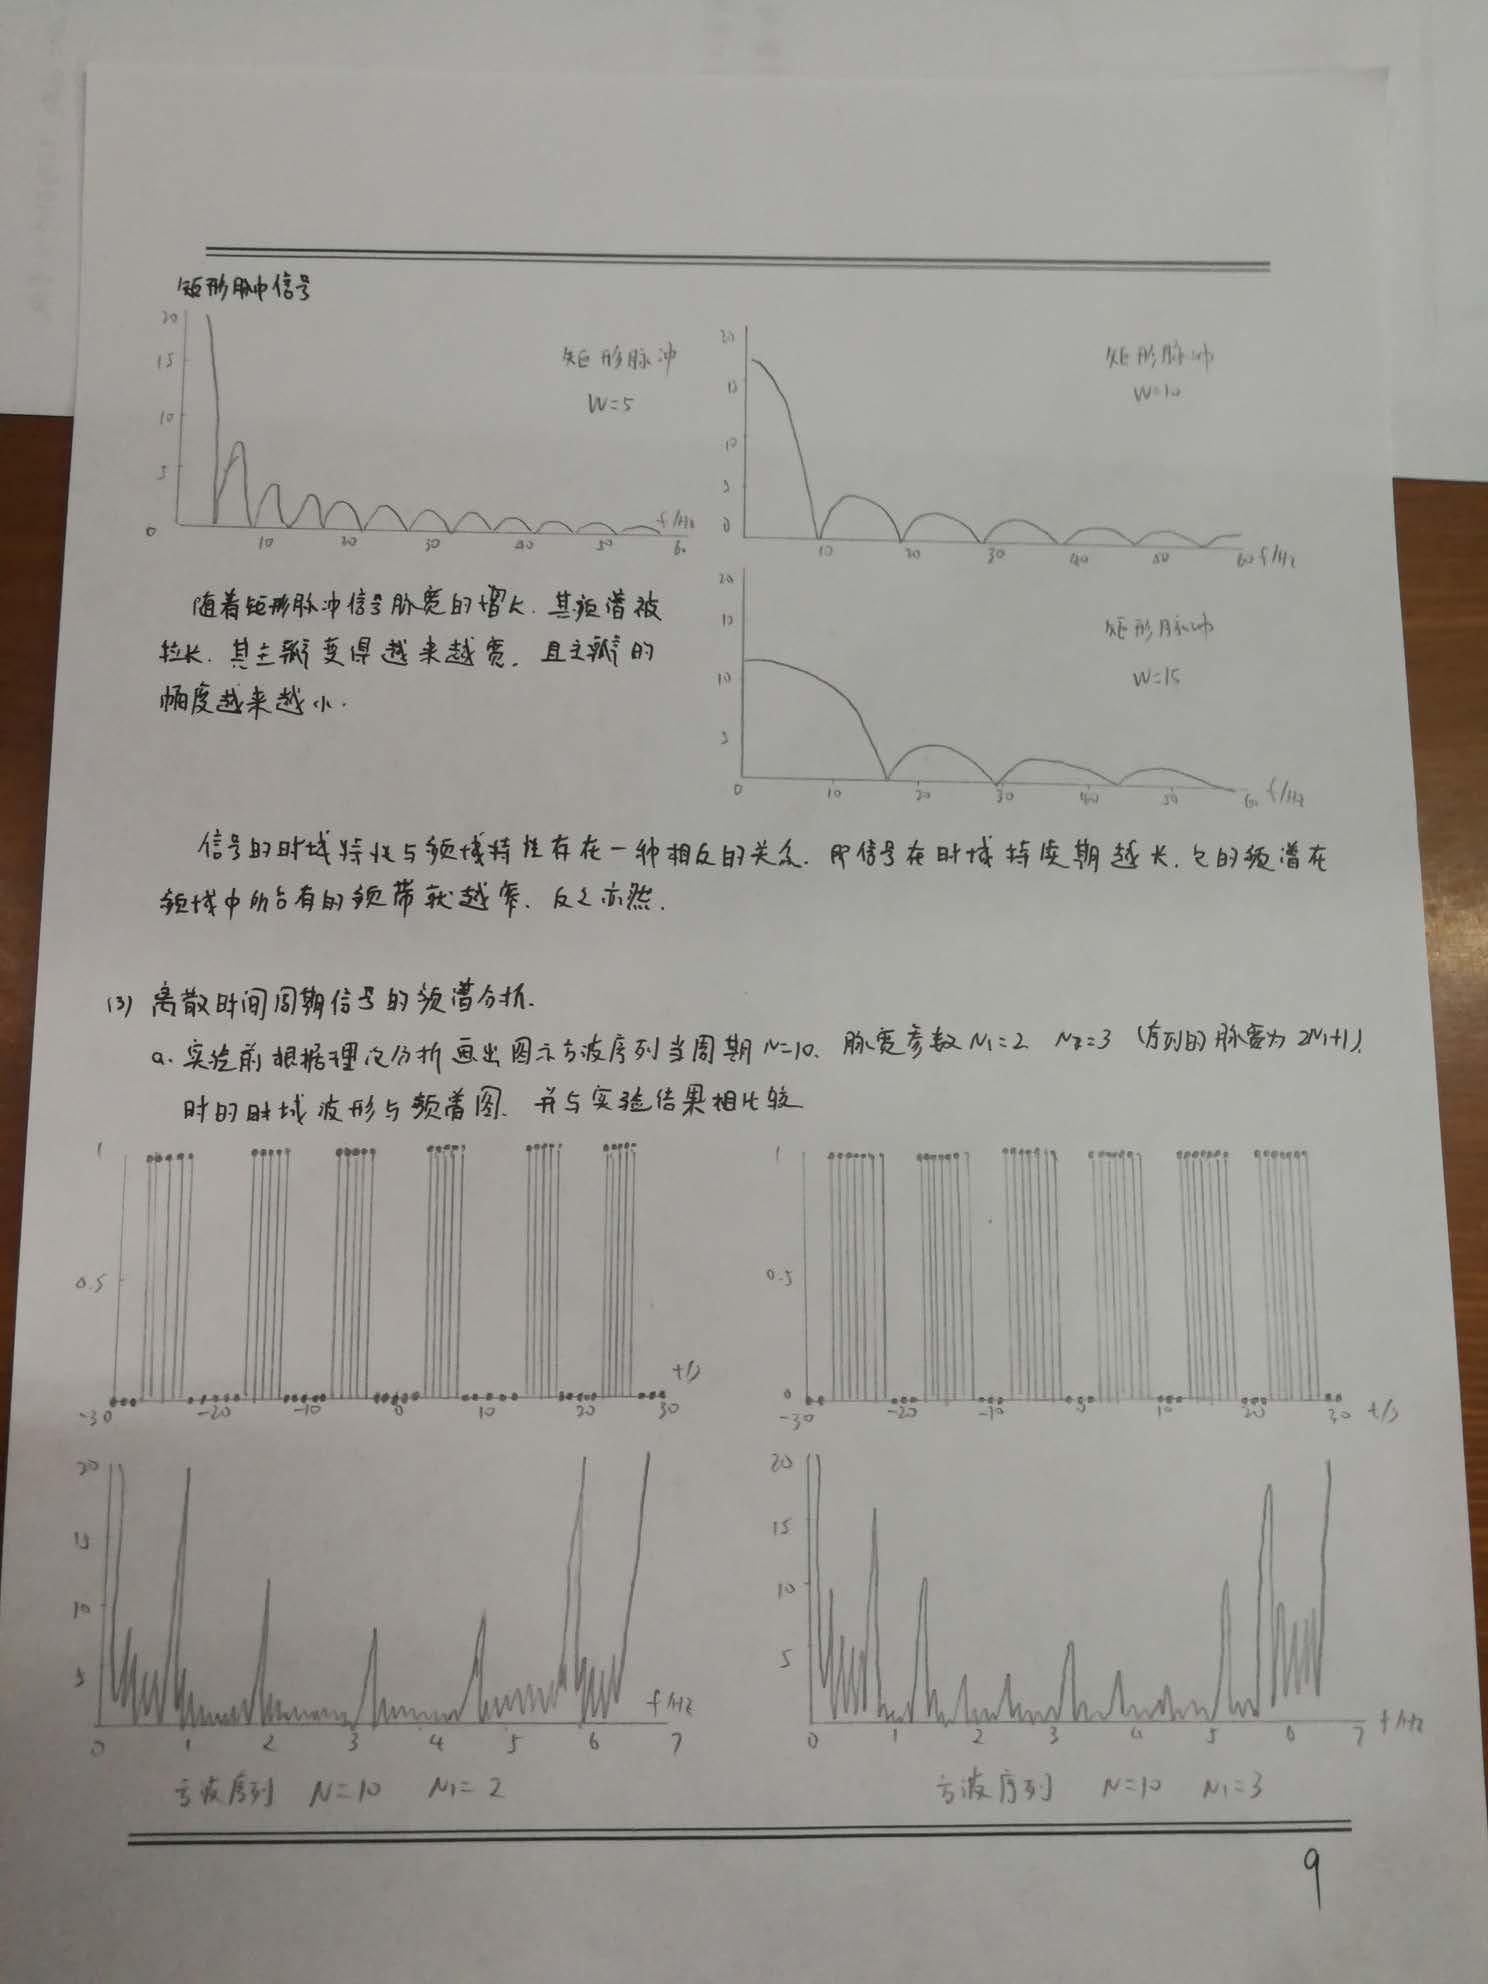 矩形脉冲信号
20
15
10
5
0
10 20 30 40 50 60
f/Hz
矩形脉冲
W=5
20
15
10
5
0
10 20 30 40 50 60 f/Hz
矩形脉冲
W=10
随着矩形脉冲信号脉宽的增长.其频谱被
拉长.其主瓣变得越来越宽.且主瓣的
幅度越来越小.
20
15
10
5
0 10 20 30 40 50 60 f/Hz
矩形脉冲
W=15
信号的时域特性与频域特性存在一种相反的关系.即信号在时域持续期越长.它的频谱在
频域中所占有的频带就越窄.反之亦然.
(3) 离散时间周期信号的频谱分析.
a. 实验前根据理论分析画出图示方波序列当周期N=10.脉宽参数N1=2 N2=3 (序列的脉宽为2N1+1).
时的时域波形与频谱图.并与实验结果相比较
1
0.5
-30 -20 -10 0 10 20 30
t/s
1
0.5
0
-30 -20 -10 0 10 20 30 t/s
20
15
10
5
0 1 2 3 4 5 6 7
f/Hz
方波序列 N=10 N1=2
20
15
10
5
0 1 2 3 4 5 6 7 f/Hz
方波序列 N=10 N1=3
9